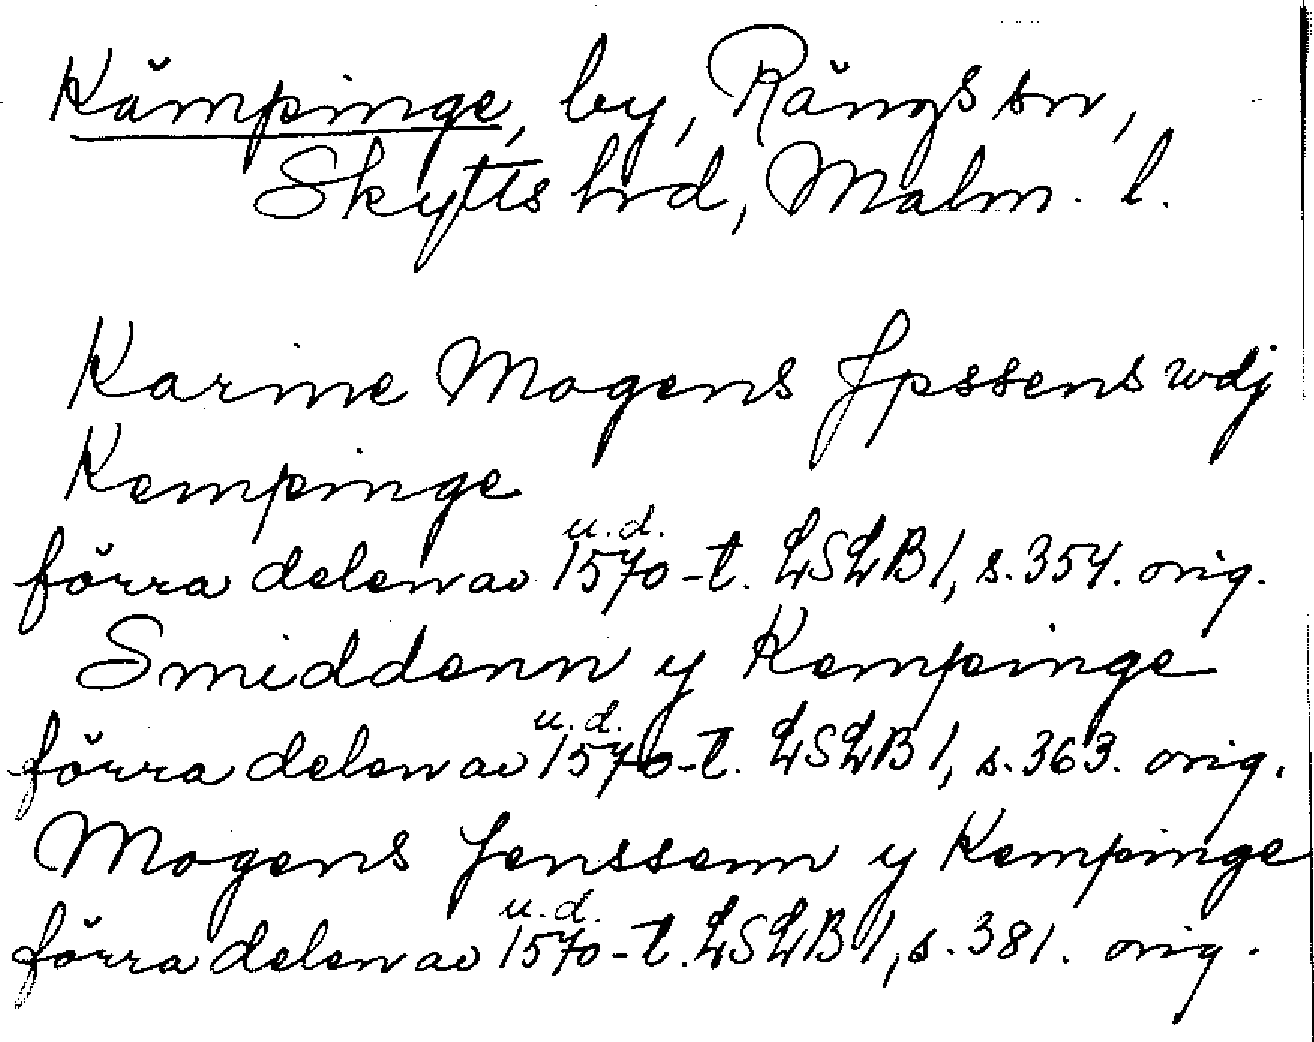 Kämpinge, by, Rängs sn,
Skytts hrd, Malm. l.
Karine Mogens Jpssens wdj
Kempinge
förra delen av u.d. 1570-t. LSLB 1, s. 354. orig.
Smiddenn y Kempinge
förra delen av u.d. 1570-t. LSLB 1, s. 363. orig.
Mogens Jenssenn y Kempinge
förra delen av u.d. 1570-t. LSLB 1, s. 381. orig.